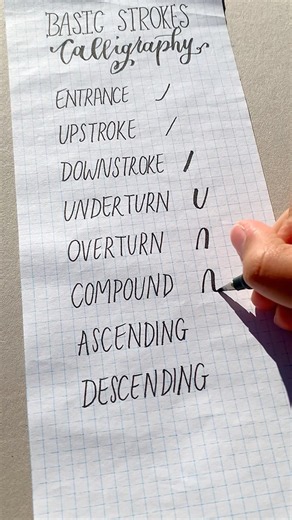 BASIC STROKES
Calligraphy
ENTRANCE
UPSTROKE
DOWNSTROKE
UNDERTURN
OVERTURN
COMPOUND
ASCENDING
DESCENDING